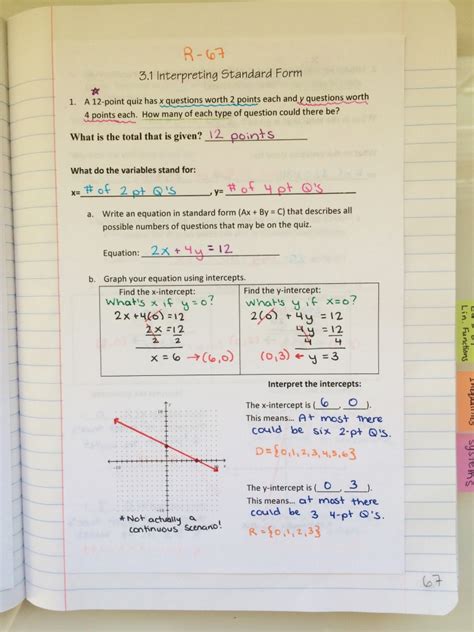 R-67
3.1 Interpreting Standard Form
1. A 12-point quiz has x questions worth 2 points each and y questions worth
4 points each. How many of each type of question could there be?
What is the total that is given? 12 points
What do the variables stand for:
x= # of 2 pt Q's , y= # of 4 pt Q's
a. Write an equation in standard form (Ax + By = C) that describes all
possible numbers of questions that may be on the quiz.
Equation: 2x + 4y = 12
b. Graph your equation using intercepts.
Find the x-intercept:
What's x if y=0?
2x+4(0)=12
2x = 12
2 2
x = 6 → (6,0)
Find the y-intercept:
What's y if x=0?
2(0) + 4y = 12
4y = 12
4 4
(0,3) ← y = 3
Interpret the intercepts:
The x-intercept is ( 6 , 0 ).
This means... At most there
could be six 2-pt Q's.
D={0,1,2,3,4,5,6}
The y-intercept is ( 0 , 3 ).
This means... at most there
could be 3 4-pt Q's.
R={0,1,2,3}
-10
*Not actually a
continuous scenario!
Lin Functions
Systems
67